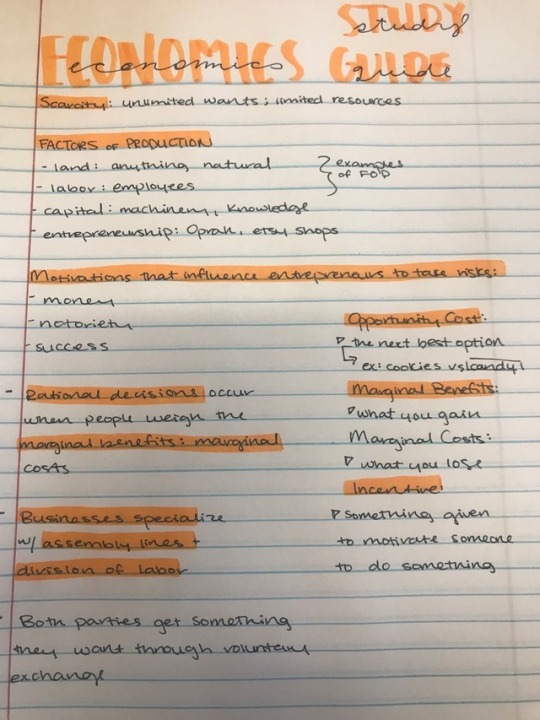 ECONOMICS STUDY GUIDE
economics study guide
Scarcity: unlimited wants; limited resources
FACTORS OF PRODUCTION
- land: anything natural
- labor: employees
- capital: machinery, Knowledge
- entrepreneurship: Oprah, etsy shops
examples
of FOP
Motivations that influence entreprenaurs to take risks:
- money
- notoriety
- success
- Rational decisions occur
when people weigh the
marginal benefits: marginal
costs
- Businesses specialize
w/ assembly lines +
division of labor
- Both parties get something
they want through voluntary
exchange
Opportunity Cost:
the next best option
ex: cookies vs candy
Marginal Benefits:
what you gain
Marginal Costs:
what you lose
Incentive:
something given
to motivate someone
to do something